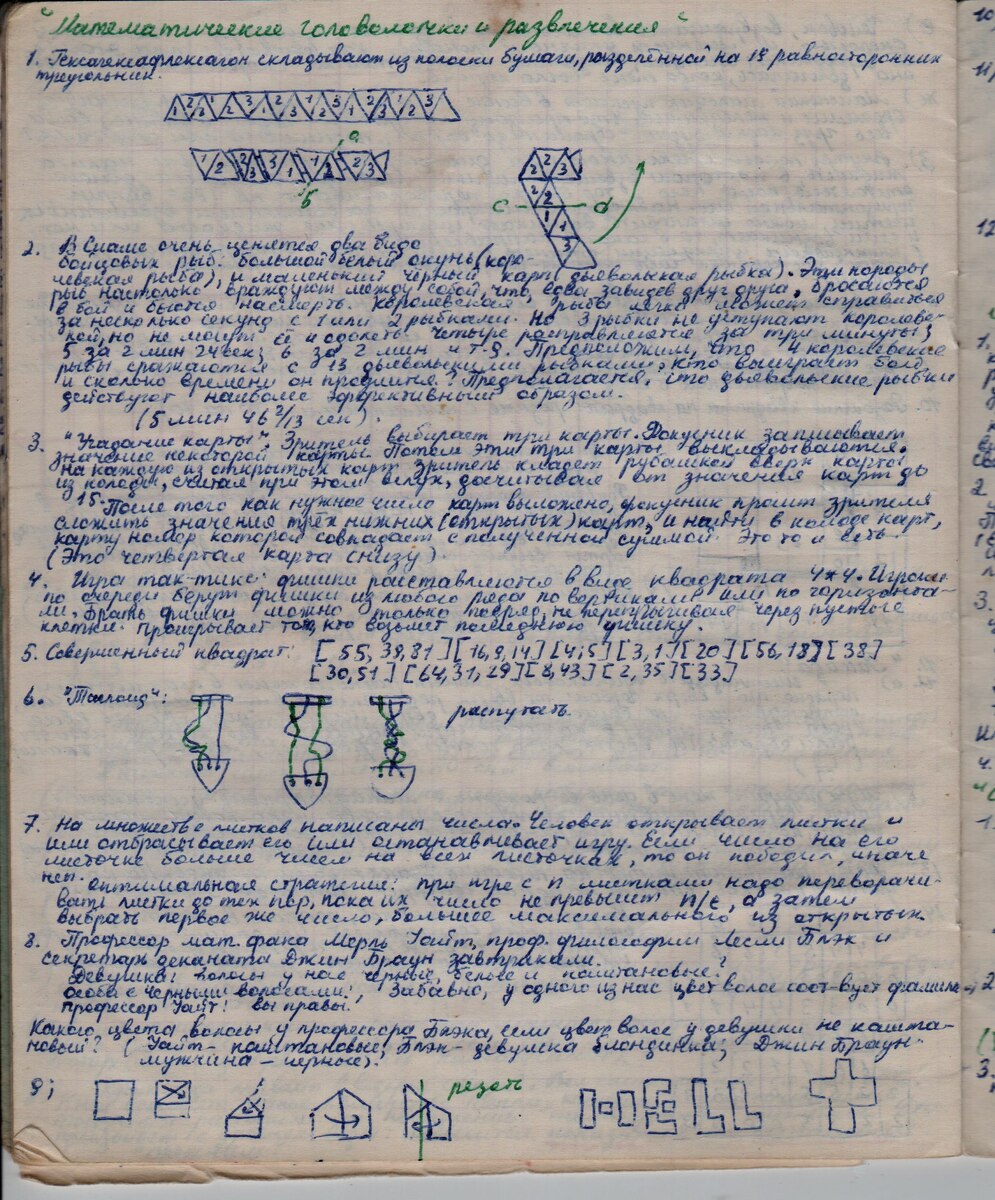 "Математические головоломки и развлечения"
1. Гексагексафлексагон складывают из полоски бумаги, разделённой на 18 равносторонних
треугольник.
а
б
c d
2. В Сиаме очень ценятся два вида
бойцовых рыб: большой белый окунь (коро-
левская рыба), и маленький черный карп (дьявольская рыбка). Эти породы
рыб настолько враждуют между собой, что, едва завидев друг друга, бросаются
в бой и бьются насмерть. Королевская рыба легко может справиться
за несколько секунд с 1 или 2 рыбками. Но 3 рыбки не уступают королевс-
кой, но не могут её и одолеть. Четыре расправляются за три минуты;
5 за 2 мин 24 сек; 6 за 2 мин и т.д. Предположим, что 4 королевские
рыбы сражаются с 13 дьявольскими рыбками, кто выиграет бой
и сколько времени он продлится? Предполагается, что дьявольские рыбки
действуют наиболее эффективным образом.
(5 мин 46 2/13 сек).
3. "Угадание карты". Зритель выбирает три карты. Фокусник записывает
значение некоторой карты. Потом эти три карты выкладываются.
На каждую из открытых карт зритель кладет рубашкой вверх карты
из колоды, считая при этом вслух, досчитывая от значения карт до
15. После того как нужное число карт выложено, фокусник просит зрителя
сложить значения трёх нижних (открытых) карт, и найти в колоде карт,
карту номер которой совпадает с полученной суммой. Это то и есть.
(Это четвертая карта снизу).
4. Игра так-тикс: фишки расставляются в виде квадрата 4*4. Игроки
по очереди берут фишки из любого ряда по вертиками или по горизонта-
ли. Брать фишки можно только подряд, не перепрыгивая через пустые
клетки. Проигрывает тот, кто возьмет последнюю фишку.
5. Совершенный квадрат: [55, 39, 81] [16, 9, 14] [4; 5] [3, 1] [20] [56, 18] [38]
[30, 51] [64, 31, 29] [8, 43] [2, 35] [33]
6. "Танглоид": распутать.
7. На множестве листков написаны числа. Человек открывает листки и
или отбрасывает его или останавливает игру. Если число на его
листочке больше чисел на всех листочках, то он победил, иначе
нет. Оптимальная стратегия: при игре с n листками надо переворачи-
вать листки до тех пор, пока их число не превысит n/e, а затем
выбрать первое же число, большее максимального из открытых.
8. Профессор мат. фака Мерль Уайт, проф. философии Лесли Блэк и
секретарь деканата Джин Браун завтракали.
Девушка: Волосы у нас черные, белые и каштановые!
Особа с черными волосами: Забавно, у одного из нас цвет волос соот-вует фамилие
профессор Уайт: вы правы.
Какого цвета волосы у профессора Блэка, если цвет волос у девушки не кашта-
новый? (Уайт- каштановые; Блэк- девушка блондинка; Джин Браун-
мужчина - черные).
9; резать
HELL